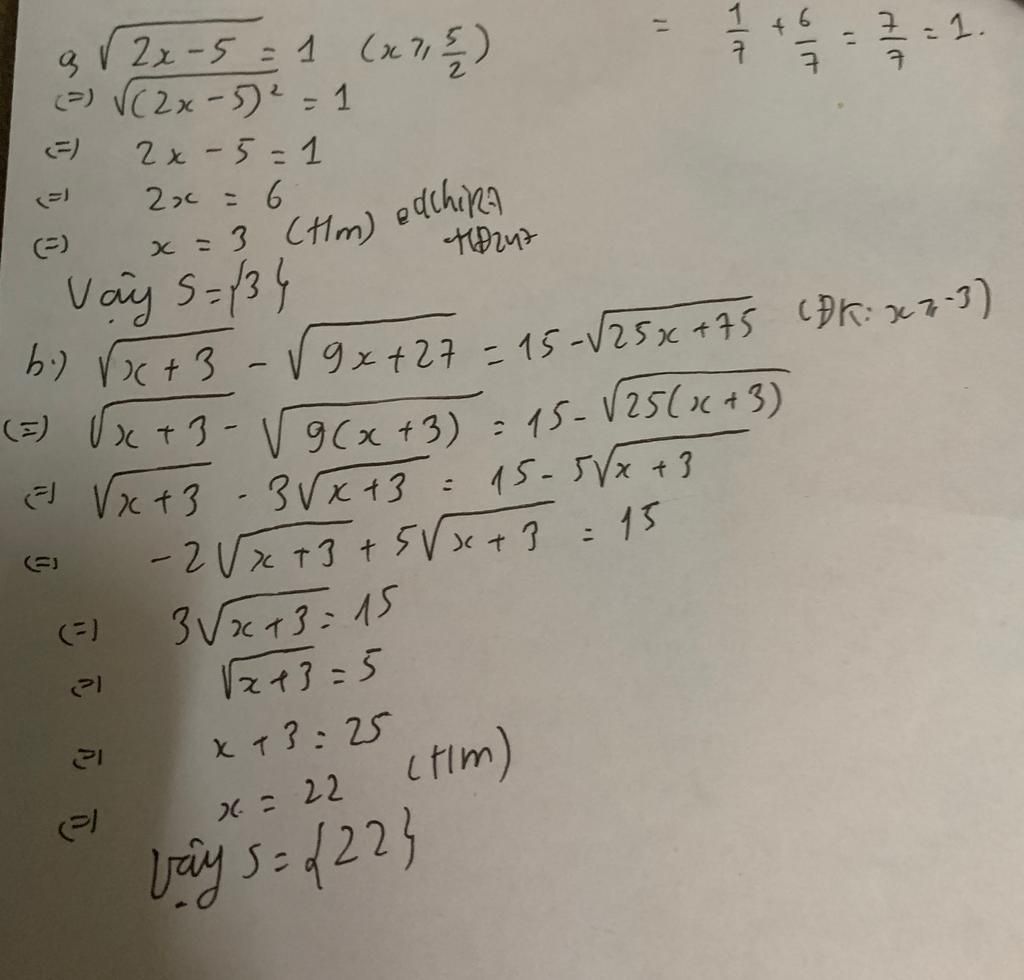 a √(2x-5) = 1 (x ≥ 5/2)
= 1/7 + 6/7 = 7/7 = 1.
(=) √((2x-5)²) = 1
(=) 2x - 5 = 1
(=) 2x = 6
(=) x = 3 (t/m)
Vậy S = {3}
b.) √(x+3) - √(9x+27) = 15 - √(25x+75) (ĐK: x ≥ -3)
(=) √(x+3) - √(9(x+3)) = 15 - √(25(x+3))
(=) √(x+3) - 3√(x+3) = 15 - 5√(x+3)
(=) -2√(x+3) + 5√(x+3) = 15
(=) 3√(x+3) = 15
(=) √(x+3) = 5
(=) x + 3 = 25
(=) x = 22 (t/m)
Vậy S = {22}